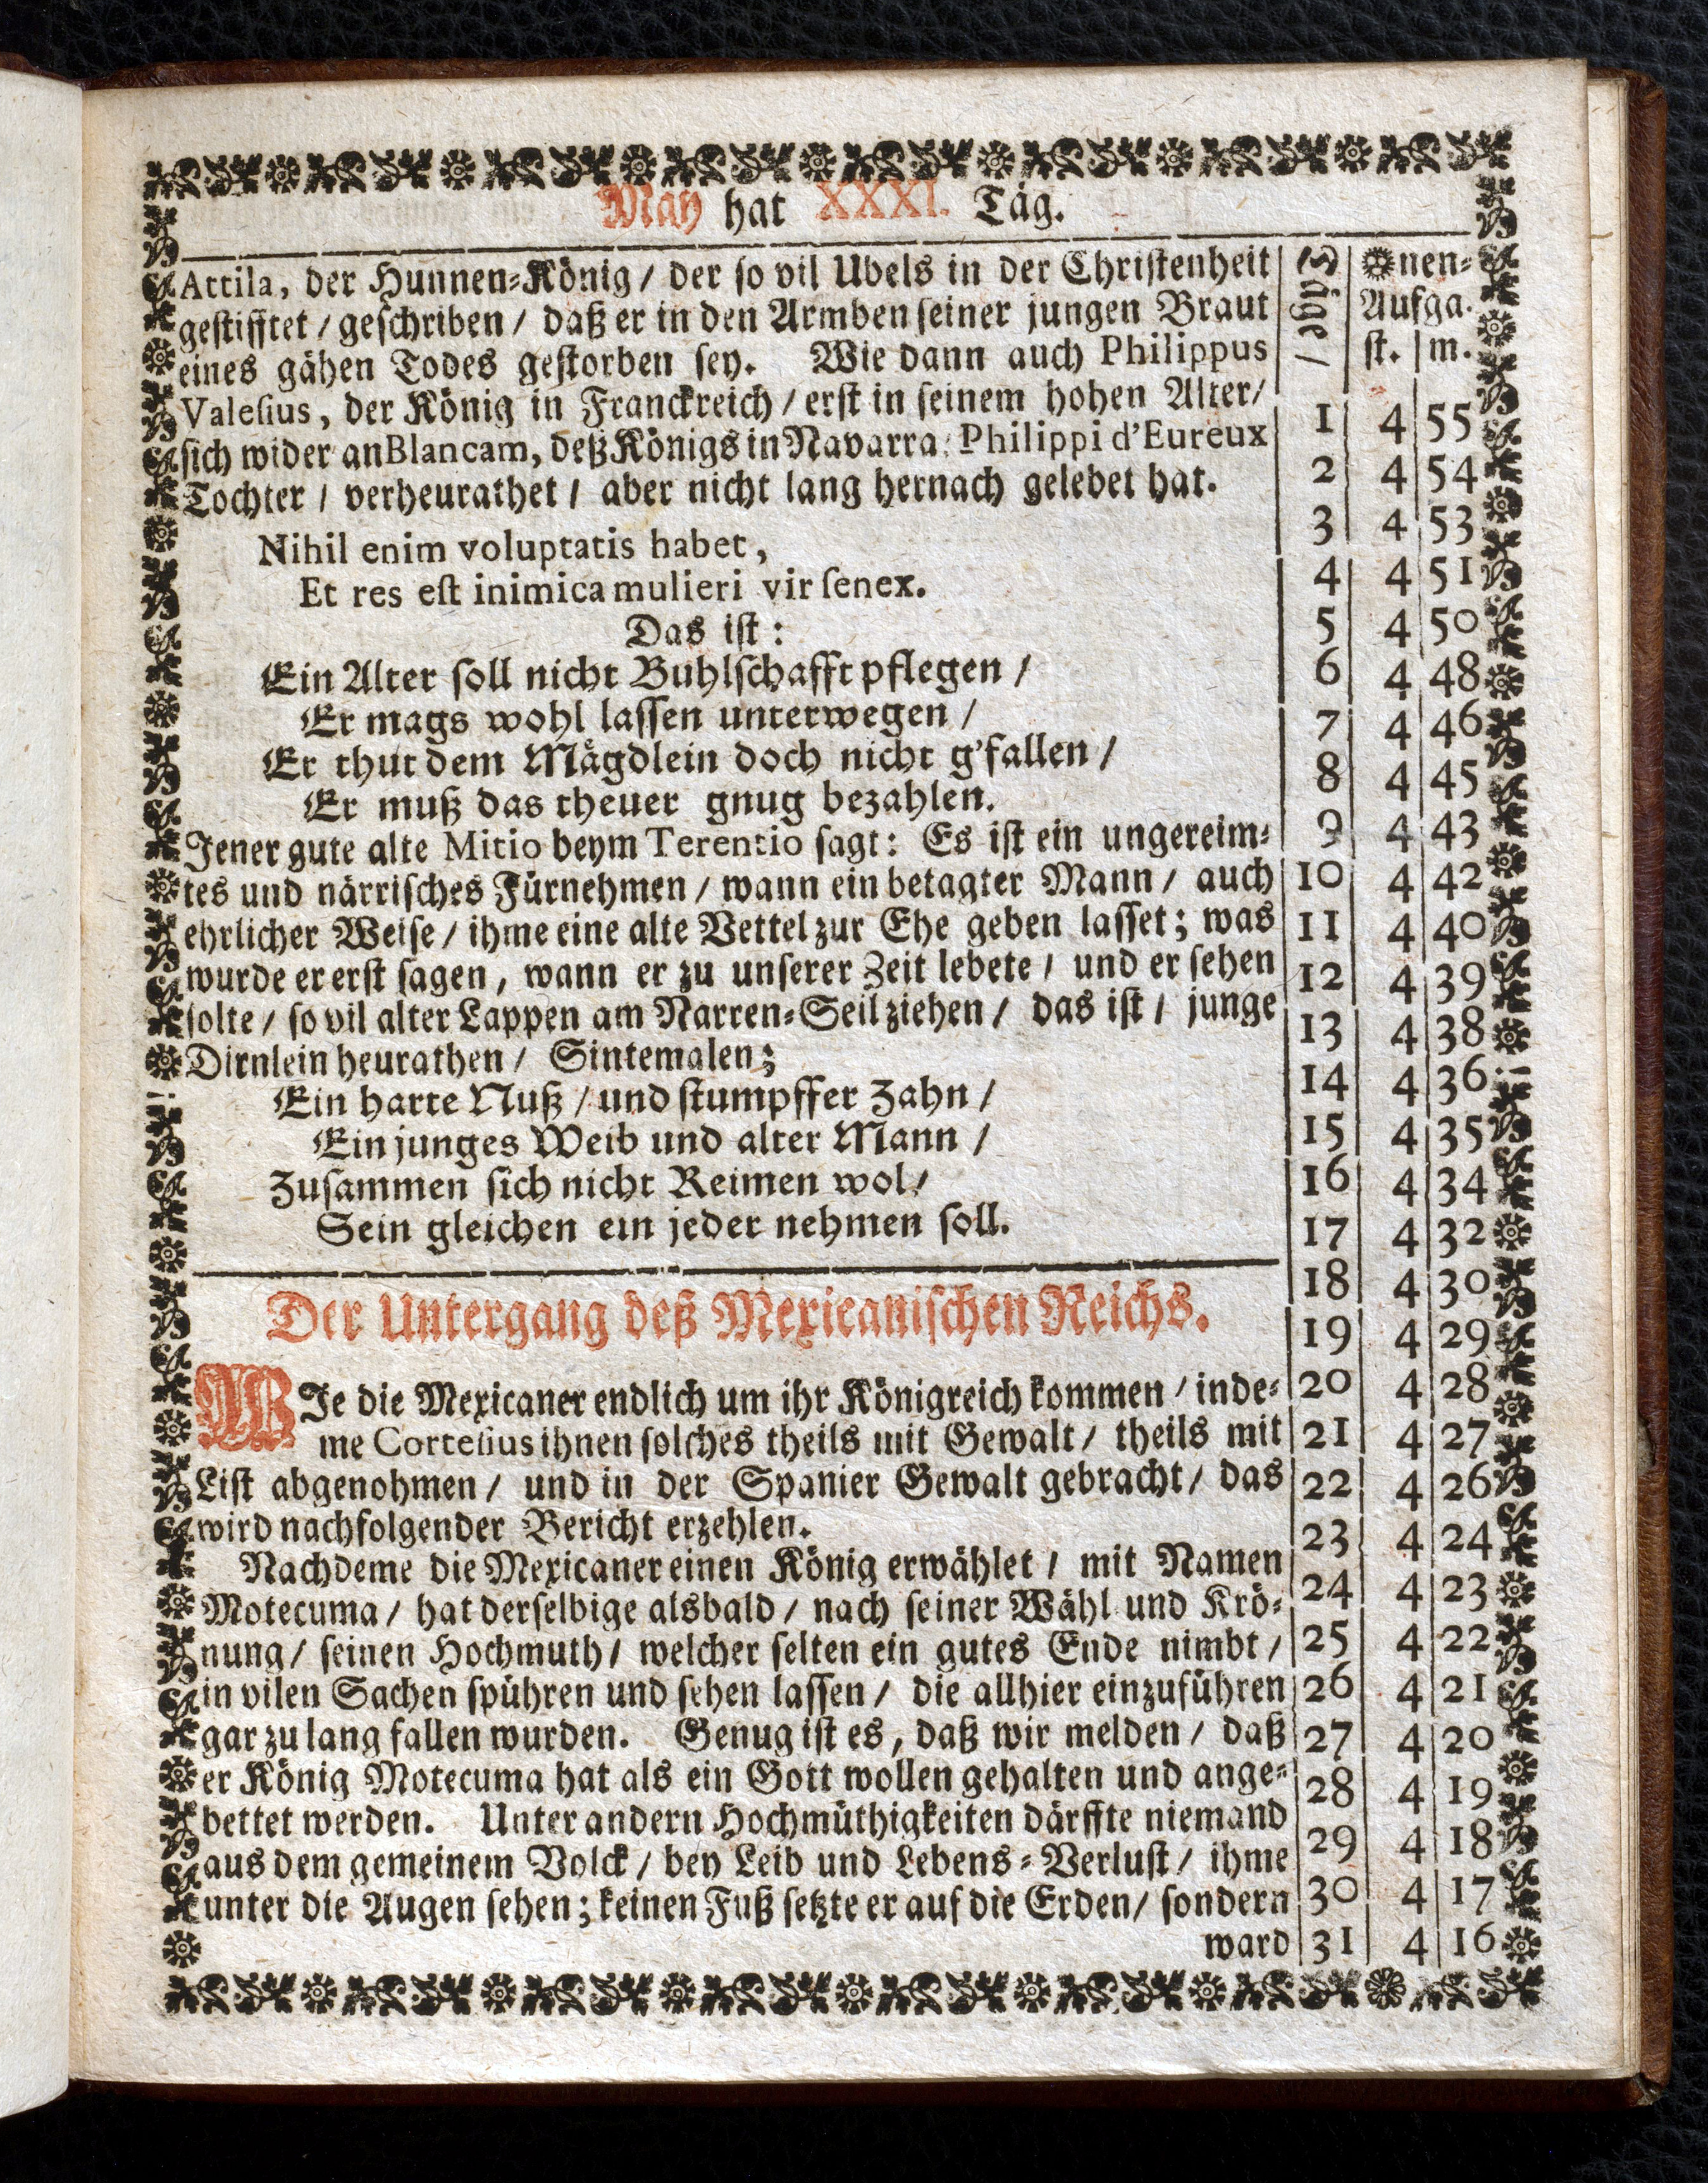 May hat XXXI. Täg.
Attila, der Hunnen=König / der so vil Ubels in der Christenheit
gestifftet / geschriben / daß er in den Armben seiner jungen Braut
eines gähen Todes gestorben sey. Wie dann auch Philippus
Valesius, der König in Franckreich / erst in seinem hohen Alter /
sich wider an Blancam, deß Königs in Navarra, Philippi d'Eureux
Tochter / verheurathet / aber nicht lang hernach gelebet hat.
Nihil enim voluptatis habet,
Et res est inimica mulieri vir senex.
Das ist:
Ein Alter soll nicht Buhlschafft pflegen /
Er mags wohl lassen unterwegen /
Er thut dem Mägdlein doch nicht g'fallen /
Er muß das theuer gnug bezahlen.
Jener gute alte Mitio beym Terentio sagt: Es ist ein ungereim=
tes und närrisches Fürnehmen / wann ein betagter Mann / auch
ehrlicher Weise / ihme eine alte Vettel zur Ehe geben lasset; was
wurde er erst sagen, wann er zu unserer Zeit lebete / und er sehen
solte / so vil alter Lappen am Narren=Seil ziehen / das ist / junge
Dirnlein heurathen / Sintemalen;
Ein harte Nuß / und stumpffer Zahn /
Ein junges Weib und alter Mann /
Zusammen sich nicht Reimen wol /
Sein gleichen ein jeder nehmen soll.
Der Untergang deß Mexicanischen Reichs.
WIe die Mexicaner endlich um ihr Königreich kommen / inde=
me Cortesius ihnen solches theils mit Gewalt / theils mit
List abgenohmen / und in der Spanier Gewalt gebracht / das
wird nachfolgender Bericht erzehlen.
Nachdeme die Mexicaner einen König erwählet / mit Namen
Motecuma / hat derselbige alsbald / nach seiner Wähl und Krö=
nung / seinen Hochmuth / welcher selten ein gutes Ende nimbt /
in vilen Sachen spühren und sehen lassen / die allhier einzuführen
gar zu lang fallen wurden. Genug ist es, daß wir melden / daß
er König Motecuma hat als ein Gott wollen gehalten und ange=
bettet werden. Unter andern Hochmüthigkeiten därffte niemand
aus dem gemeinem Volck / bey Leib und Lebens=Verlust / ihme
unter die Augen sehen; keinen Fuß setzte er auf die Erden / sondern
ward
Täge /
☉nen=
Aufga.
st. m.
1 4 55
2 4 54
3 4 53
4 4 51
5 4 50
6 4 48
7 4 46
8 4 45
9 4 43
10 4 42
11 4 40
12 4 39
13 4 38
14 4 36
15 4 35
16 4 34
17 4 32
18 4 30
19 4 29
20 4 28
21 4 27
22 4 26
23 4 24
24 4 23
25 4 22
26 4 21
27 4 20
28 4 19
29 4 18
30 4 17
31 4 16